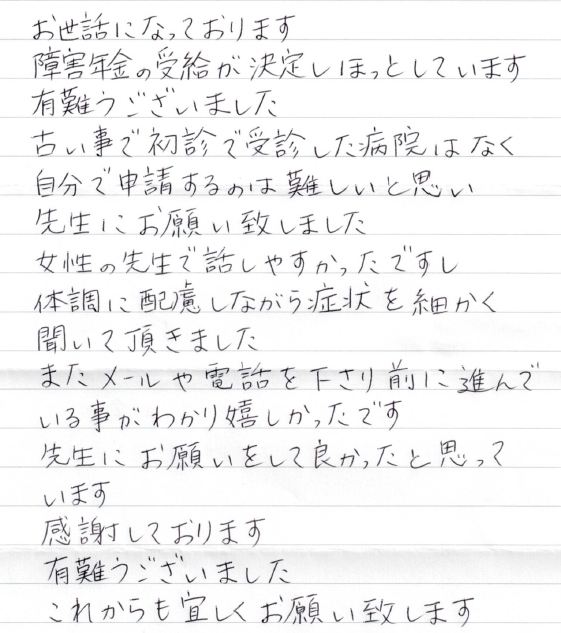 お世話になっております
障害年金の受給が決定しほっとしています
有難うございました
古い事で初診で受診した病院はなく
自分で申請するのは難しいと思い
先生にお願い致しました
女性の先生で話しやすかったですし
体調に配慮しながら症状を細かく
聞いて頂きました
またメールや電話を下さり前に進んで
いる事がわかり嬉しかったです
先生にお願いをして良かったと思って
います
感謝しております
有難うございました
これからも宜しくお願い致します